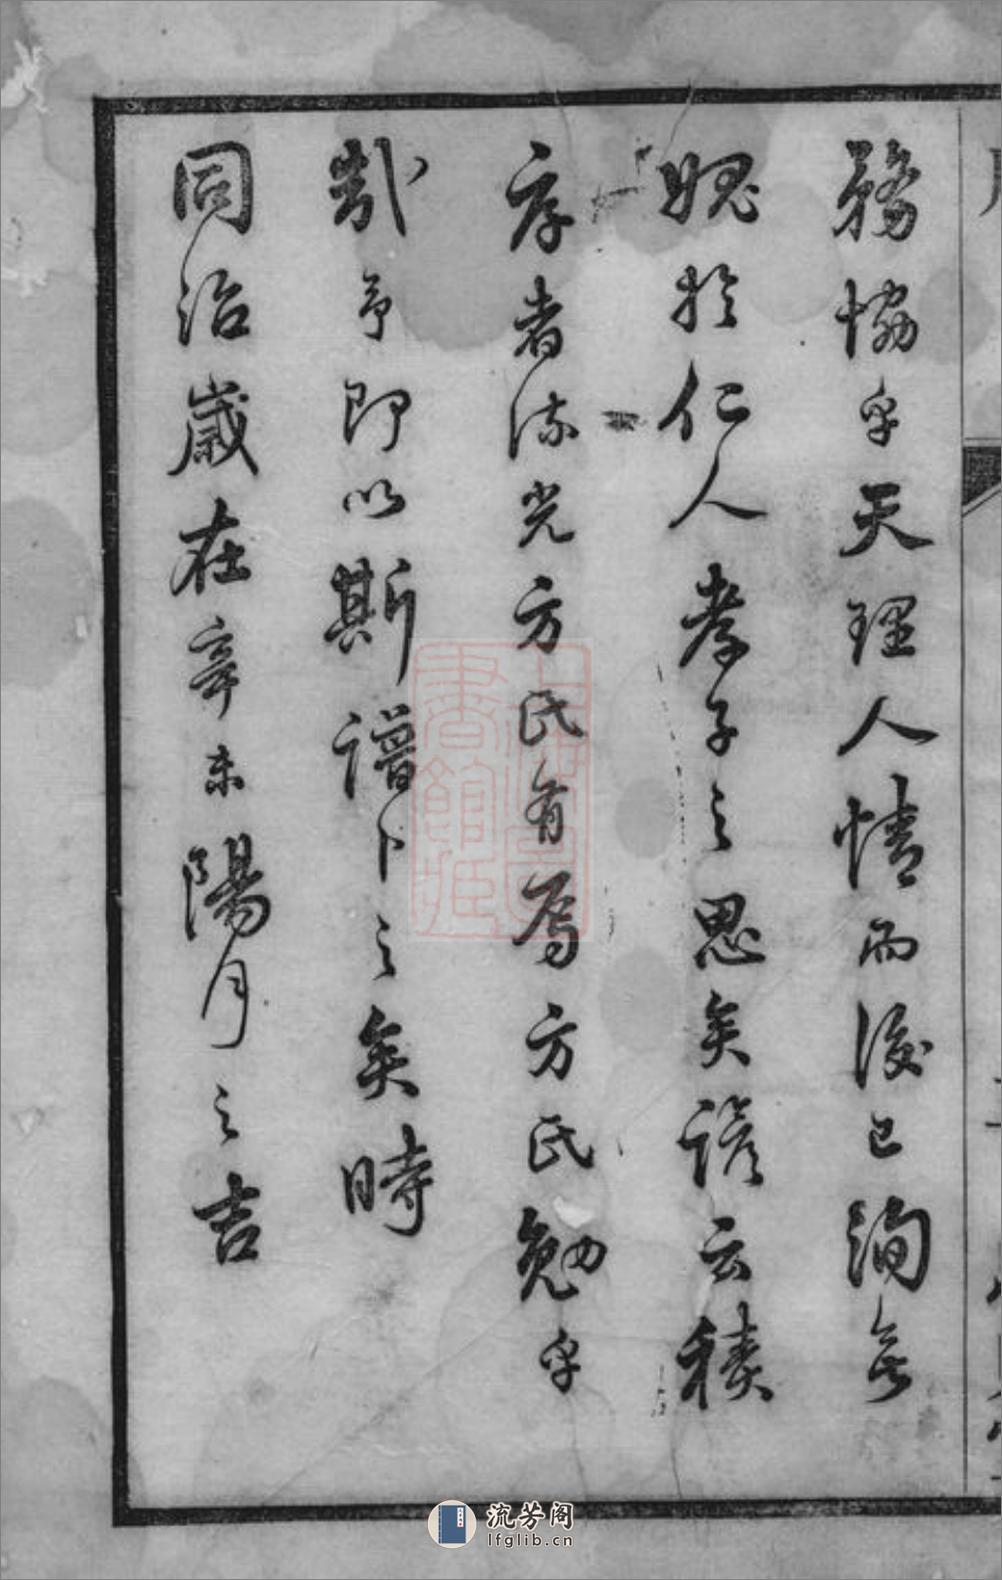 務恊乎天理人情而後已洵無
媿於仁人孝子之思矣諺云積
厚者流光方氏有焉方氏勉乎
哉予即以斯譜卜之矣時
同治歲在辛未陽月之吉
流芳阁
lfglib.cn